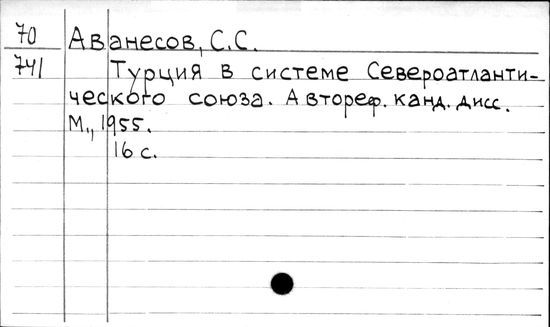 70 Аванесов, С.С.
741 Турция в системе Североатланти-
ческого союза. Автореф. канд. дисс.
М., 1955.
16 с.